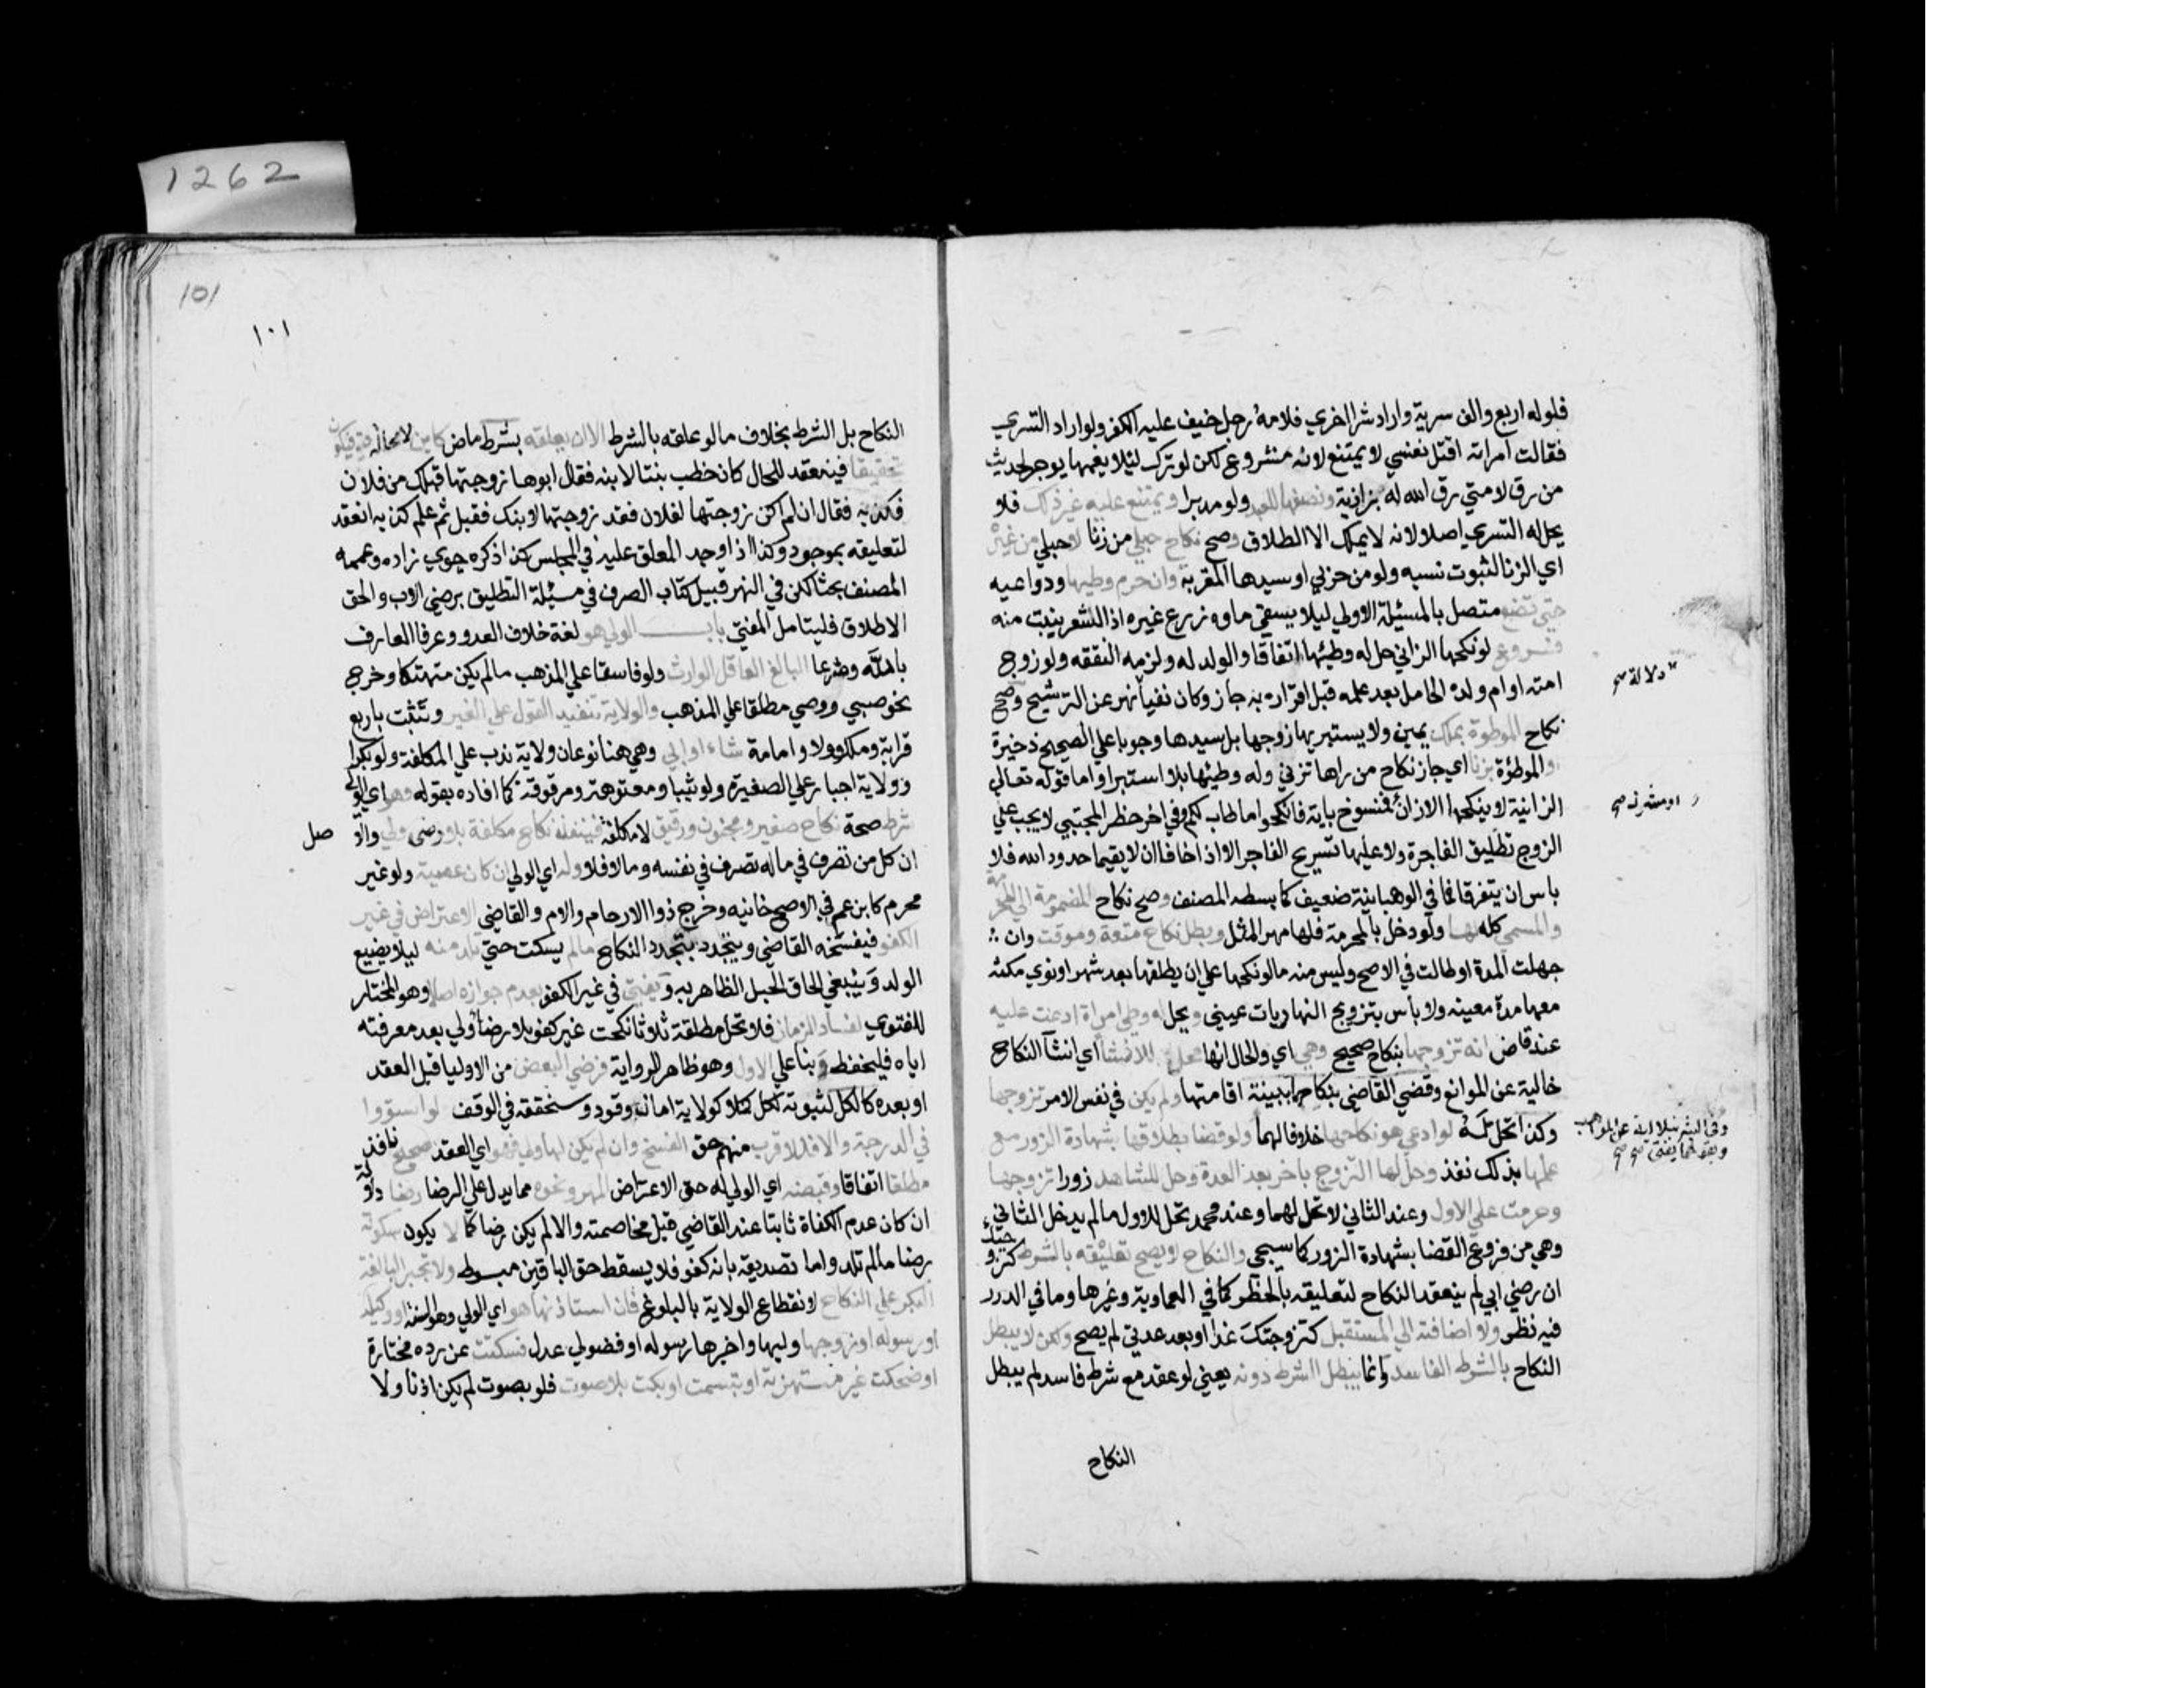 1262
فلوله اربع والف سرية واراد شرا اخري فلامه رجل خيف عليه الكفر ولو اراد التسري
فقالت امراته اقتل نفسي لا يمتنع لانه مشروع لكن لو ترك ليلا يغمها يوجر لحديث
من رق لامتي رق الله له بزازية ونصفها للعبد ولو مدبرا ويمتنع عليه غير ذلك فلا
يحل له التسري اصلا لانه لا يملك الا الطلاق وصح نكاح حبلي من زنا لا حبلي من غيره
اي الزنا لثبوت نسبه ولو من حربي او سيدها المقر به وان حرم وطيها ودواعيه
حتي تضع متصل بالمسئلة الاولي ليلا يسقي ماوه زرع غيره اذ الشعر ينبت منه
فروع لو نكحها الزاني حل له وطئها اتفاقا والولد له ولزمه النفقه ولو زوج
امته او ام ولده الحامل بعد علمه قبل اقراره به جاز وكان نفيا نهر عن الترشيح وصح
دلالة صح
نكاح الموطوة بملك يمين ولا يستبريها زوجها بل سيدها وجوبا علي الصحيح ذخيرة
او الموطؤة بزنا اي جاز نكاح من راها تزني وله وطيئها بلا استبرا واما قوله تعالي
الزانية لا ينكحها الا زان فمنسوخ باية فانكحوا ما طاب لكم وفي اخر حظر المجتبي لا يجب علي
او مشرك صح
الزوج تطليق الفاجرة ولا عليها تسريح الفاجر الا اذا خافا ان لا يقيما حدود الله فلا
باس ان يتفرقا فما في الوهبانية ضعيف كما بسطه المصنف وصح نكاح المضمومة الي المحرمة
والمسمي كله لها ولو دخل بالمحرمة فلها مهر المثل وبطل نكاح متعة وموقت وان
جهلت المدة او طالت في الاصح وليس منه ما لو نكحها علي ان يطلقها بعد شهر او نوي مكثه
معها مدة معينه ولا بأس بتزويج النهاريات عيني ويحل له وطي امراة ادعت عليه
عند قاض انه تزوجها بنكاح صحيح وهي اي والحال انها محل للانشا اي انشآ النكاح
خالية عن الموانع وقضي القاضي بنكاحها ببينة اقامتها ولم يكن في نفس الامر تزوجها
وكذا تحل له لو ادعي هو نكاحها خلافا لهما ولو قضا بطلاقها بشهادة الزور مع
وفي الشرنبلالية عن المواهب
وبقولهما يفتي صح
علمها بذلك نفذ وحل لها التزوج باخر بعد العدة وحل للشاهد زورا تزوجها
وحرمت علي الاول وعند الثاني لا تحل لهما وعند محمد تحل للاول ما لم يدخل الثاني
وهي من فروع القضا بشهادة الزور كما سيجي والنكاح لا يصح تعليقه بالشرط كتزوجتك
ان رضي ابي لم ينعقد النكاح لتعليقه بالخطر كما في العمادية وغيرها وما في الدرر
فيه نظر ولا اضافته الي المستقبل كتزوجتك غدا او بعد غد لم يصح ولكن لا يبطل
النكاح بالشرط الفاسد وانما يبطل الشرط دونه يعني لو عقد مع شرط فاسد لم يبطل
النكاح
101
١٠١
النكاح بل الشرط بخلاف ما لو علقه بالشرط الا ان يعلقه بشرط ماض كاين لا محالة فيكون
تحقيقا فينعقد للحال كان خطب بنتا لابنه فقال ابوها زوجتها قبلك من فلان
فكذبه فقال ان لم اكن زوجتها لفلان فقد زوجتها لابنك فقبل ثم علم كذبه انعقد
لتعليقه بموجود وكذا اذا وجد المعلق عليه في المجلس كذا ذكره جوي زاده وعممه
المصنف بحثا لكن في النهر قبيل كتاب الصرف في مسئلة التطليق برضي الاب والحق
الاطلاق فليتامل المفتي باب الولي هو لغة خلاف العدو وعرفا العارف
بالله وشرعا البالغ العاقل الوارث ولو فاسقا علي المذهب ما لم يكن متهتكا وخرج
نحو صبي ووصي مطلقا علي المذهب والولاية تنفيذ القول علي الغير وتثبت باربع
قرابة وملك وولا وامامة شاء او ابي وهي هنا نوعان ولاية ندب علي المكلفة ولو بكرا
وولاية اجبار علي الصغيرة ولو ثيبا ومعتوهة ومرقوقة كما افاده بقوله وهو اي الولي
شرط صحة نكاح صغير ومجنون ورقيق لا مكلفة فينفذ نكاح مكلفة بلا رضي ولي والا
صل
ان كل من تصرف في ماله تصرف في نفسه وما لا فلا وله اي الولي ان كان عصبة ولو غير
محرم كابن عم في الاصح خانيه وخرج ذوا الارحام والام والقاضي الاعتراض في غير
الكفو فيفسخه القاضي ويتجدد بتجدد النكاح ما لم يسكت حتي تلد منه ليلا يضيع
الولد وينبغي الحاق الحبل الظاهر به ويفتي في غير الكفو بعدم جوازه اصلا وهو المختار
للفتوي لفساد الزمان فلا تحل مطلقة ثلاثا نكحت غير كفو بلا رضا ولي بعد معرفته
اياه فليحفظ وبنا علي الاول وهو ظاهر الرواية فرضي البعض من الاوليا قبل العقد
او بعده كالكل لثبوته لكل كملا كولاية امان وقود وسنحققه في الوقف لو استووا
في الدرجة والا فللاقرب منهم حق الفسخ وان لم يكن لها ولي فهو اي العقد صحيح نافذ
مطلقا اتفاقا وقبضه اي الولي له حق الاعتراض المهر ونحوه مما يدل علي الرضا رضا دلالة
ان كان عدم الكفاة ثابتا عند القاضي قبل مخاصمته والا لم يكن رضا كما لا يكون سكوته
رضا ما لم تلد واما تصديقه بانه كفو فلا يسقط حق الباقين مبسوط ولا تجبر البالغة
البكر علي النكاح لانقطاع الولاية بالبلوغ فان استاذنها هو اي الولي وهو السنة او وكيله
او رسوله او زوجها وليها واخبرها رسوله او فضولي عدل فسكتت عن رده مختارة
او ضحكت غير مستهزئة او تبسمت او بكت بلا صوت فلو بصوت لم يكن اذنا ولا